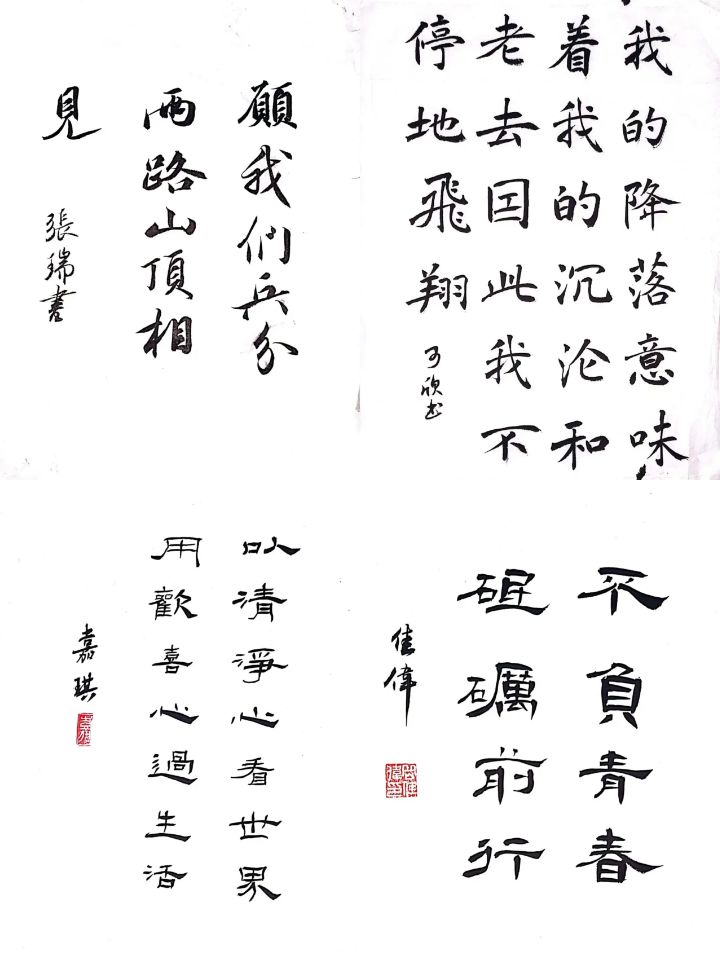 願我們兵分
両路山頂相
見
張瑞書
我的降落意味
着我的沉沦和
老去因此我不
停地飛翔
可欣书
以清淨心看世界
用歡喜心過生活
嘉琪
不負青春
砥礪前行
佳偉